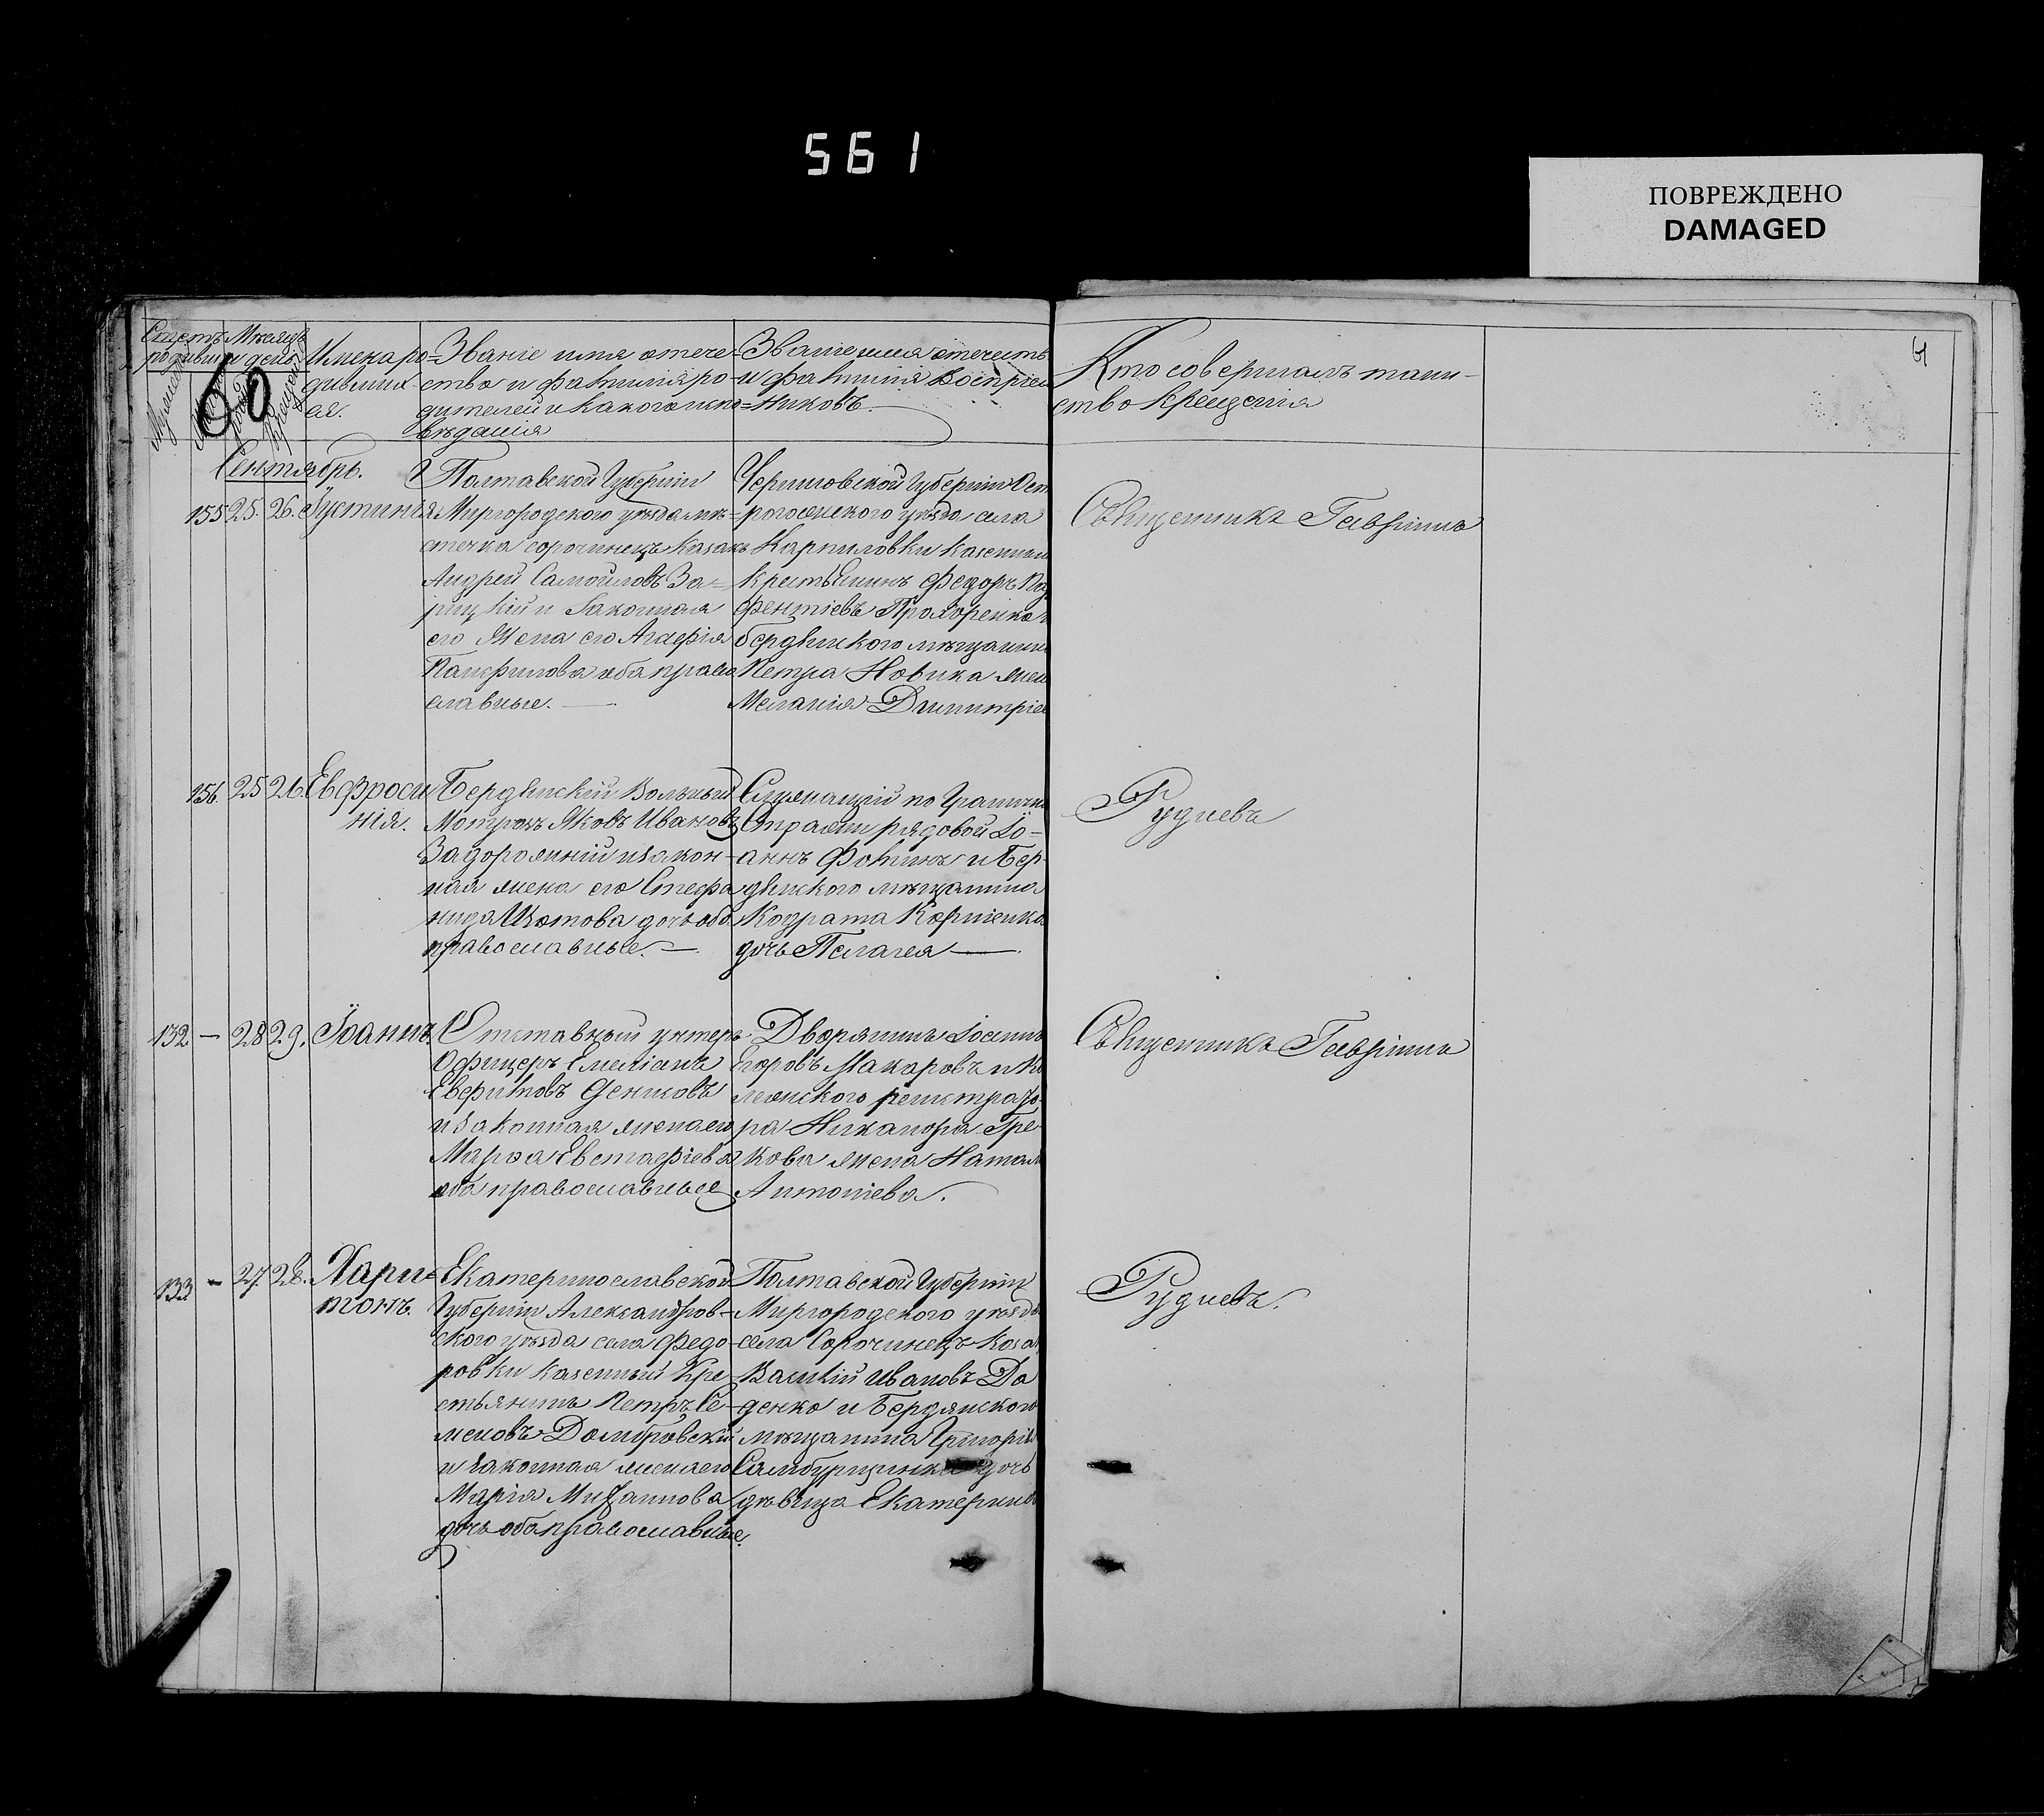 561
ПОВРЕЖДЕНО
DAMAGED
Счетъ
родивши
Мѣсяцъ
и день
Имена ро-
дивших-
ся.
Званіе имя отече-
ство и фамилія ро-
дителей и какого испо-
вѣданія
Званіе имя отечеств
и фамилія воспріем
никовъ.
Кто совершалъ таин-
ство крещенія
60
Сентябрь.
155 25. 26. Іустинія
Полтавской Губерніи
Миргородского уѣзда мѣ-
стечка Сорочинецъ казакъ
Андрей Самойловъ За-
рицкій и законная
его жена его Агафія
Панфилова оба право
славные.
Черниговской Губерніи Ост
уѣзда села
Карпиловки казенный
крестьянинъ Федоръ Пар
фентіевъ Прохоренко и
бердянского мѣщанина
Петра Новика жена
Меланія Димитріев
Священникъ Гавріилъ
156. 25 26 Евфроси
нія.
Бердянскій Вольный
Матрозъ Яковъ Ивановъ
Задорожній и закон-
ная жена его Стефа
нида дочь оба
православные.
Служащій по Граничн
Стражи рядовой Іо-
аннъ Фоминъ и Бер-
дянского мѣщанина
Кодрата Корніенка
дочь Пелагея
Рудневъ
132 — 28 29. Іоаннъ.
Отставный унтеръ
Офицеръ Емеліанъ
Дениковъ
и законная жена его
Марфа Евстафіева
оба православные
Дворянинъ Іоаннъ
Егоровъ Макаровъ и Ко
лежского регистрато-
ра Никанора Гре
кова жена Натал
Антоніева.
Священникъ Гавріилъ
133 — 27. 28. Хари-
тонъ.
Екатеринославской
Губерніи Александров-
ского уѣзда села Федо-
ровки казенный Кре
стьянинъ Петръ Се-
меновъ Домбровскій
и законная жена его
Марія Михаилова
дочь оба православные.
Полтавской Губерніи
Миргородского уѣзда
села Сорочинецъ Коза
Василій Ивановъ Да
денко и Бердянского
мѣщанина Григорія
дочь
дѣвица Екатерина
Рудневъ.